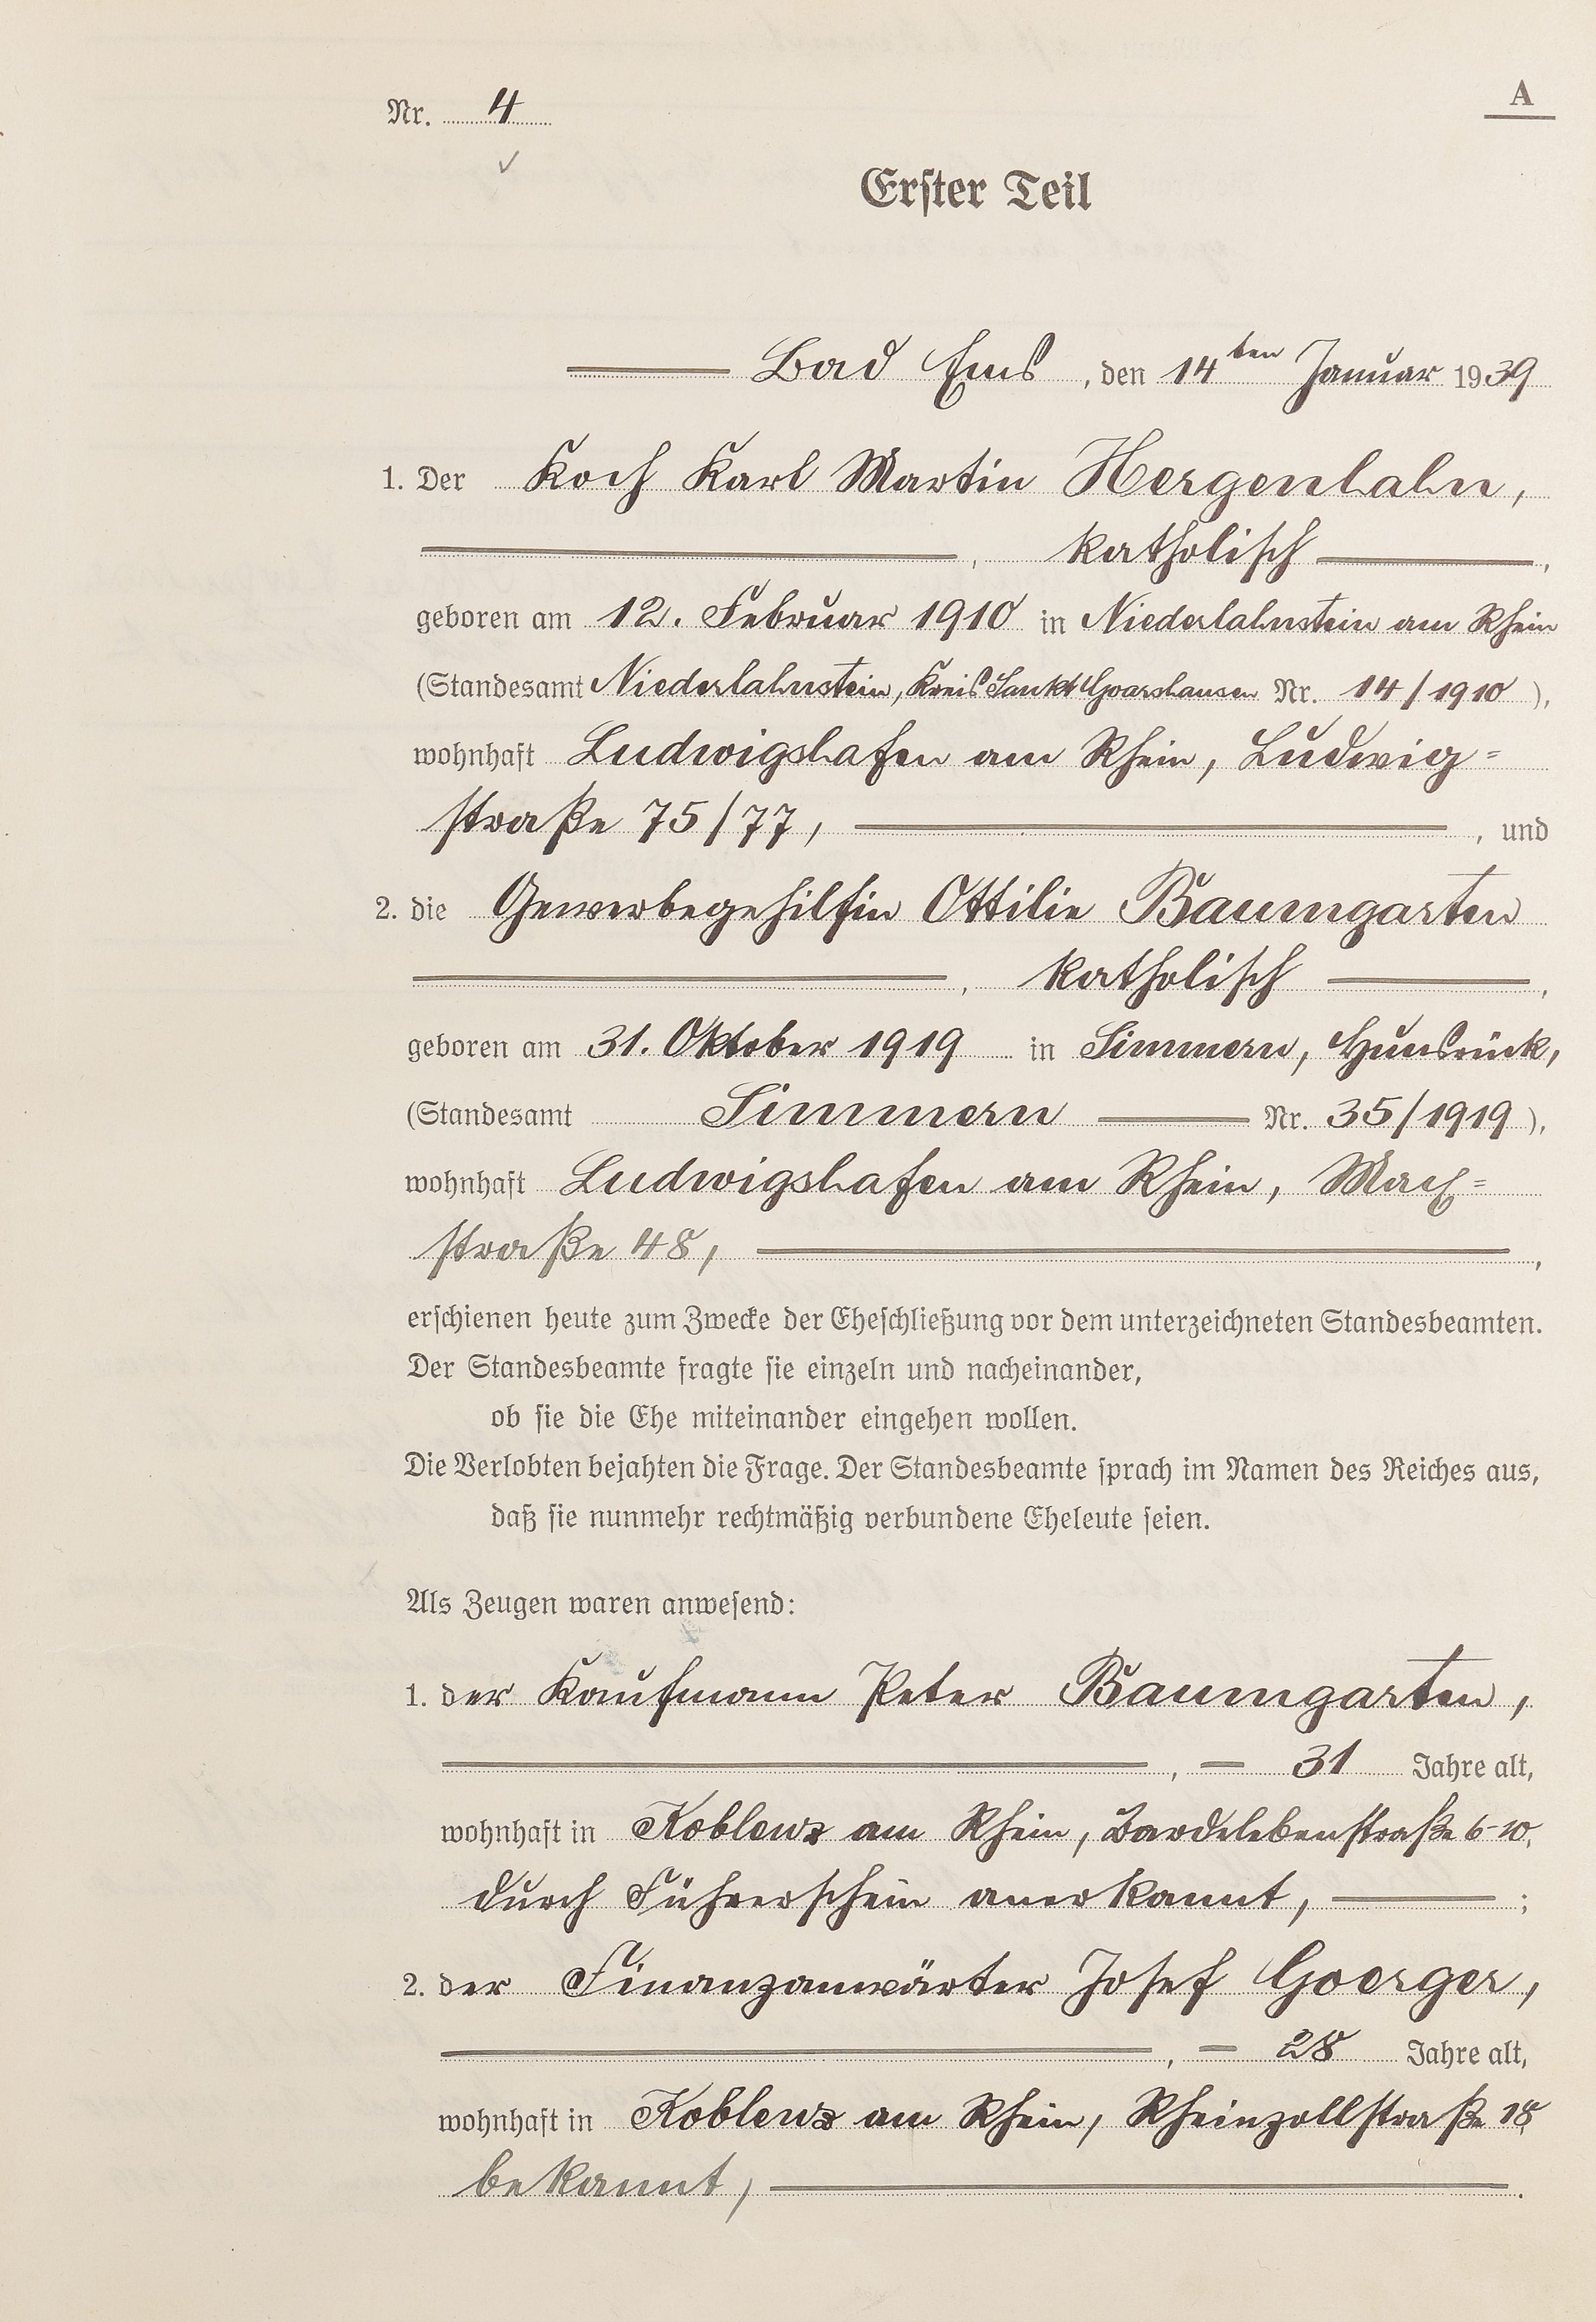 Nr. 4
A
Erster Teil
Bad Ems, den 14ten Januar 1939
1. Der Koch Karl Martin Hergenhahn,
, katholisch,
geboren am 12. Februar 1910 in Niederlahnstein am Rhein
(Standesamt Niederlahnstein, Kreis Sankt Goarshausen Nr. 14/1910),
wohnhaft Ludwigshafen am Rhein, Ludwig=
straße 75/77, , und
2. die Gewerbegehilfin Ottilie Baumgarten
, katholisch,
geboren am 31. Oktober 1919 in Simmern, Hunsrück,
(Standesamt Simmern Nr. 35/1919),
wohnhaft Ludwigshafen am Rhein, Max=
straße 48, ,
erschienen heute zum Zwecke der Eheschließung vor dem unterzeichneten Standesbeamten.
Der Standesbeamte fragte sie einzeln und nacheinander,
ob sie die Ehe miteinander eingehen wollen.
Die Verlobten bejahten die Frage. Der Standesbeamte sprach im Namen des Reiches aus,
daß sie nunmehr rechtmäßig verbundene Eheleute seien.
Als Zeugen waren anwesend:
1. der Kaufmann Peter Baumgarten,
, 31 Jahre alt,
wohnhaft in Koblenz am Rhein, Bardelebenstraße 6-10,
durch Führerschein anerkannt, ;
2. der Finanzanwärter Josef Goerger,
, 28 Jahre alt,
wohnhaft in Koblenz am Rhein, Rheinzollstraße 18,
bekannt, .